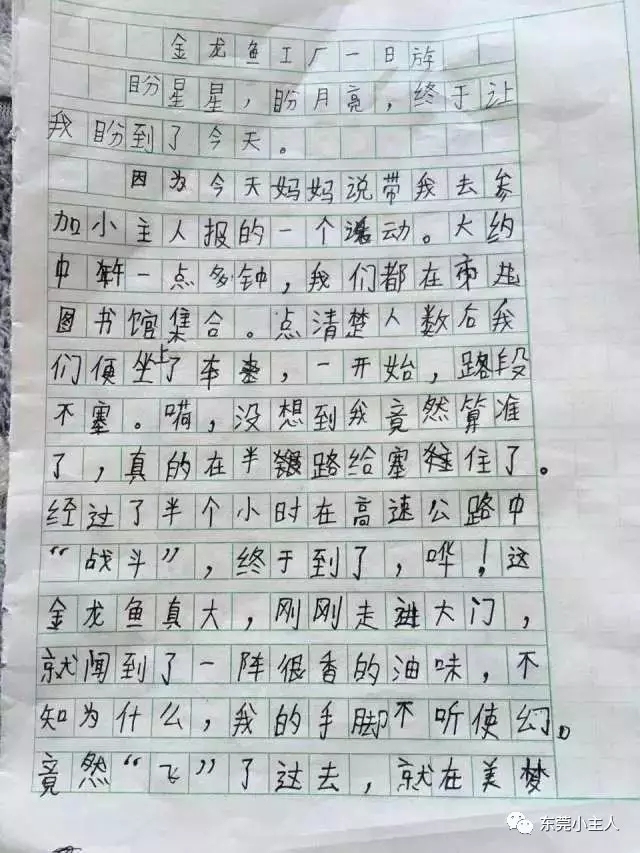 金龙鱼工厂一日斿
盼星星，盼月亮，终于让
我盼到了今天。
因为今天妈妈说带我去参
加小主人报的一个活动。大约
中午一点多钟，我们都在
图书馆集合。点清楚人数后我
们便坐上了车，一开始，路段
不塞。嗬，没想到我竟然算准
了，真的在半路给塞住了。
经过了半个小时在高速公路中
“战斗”，终于到了，哗！这
金龙鱼真大，刚刚走进大门，
就闻到了一阵很香的油味，不
知为什么，我的手脚不听使幻。
竟然“飞”了过去，就在美梦
东莞小主人